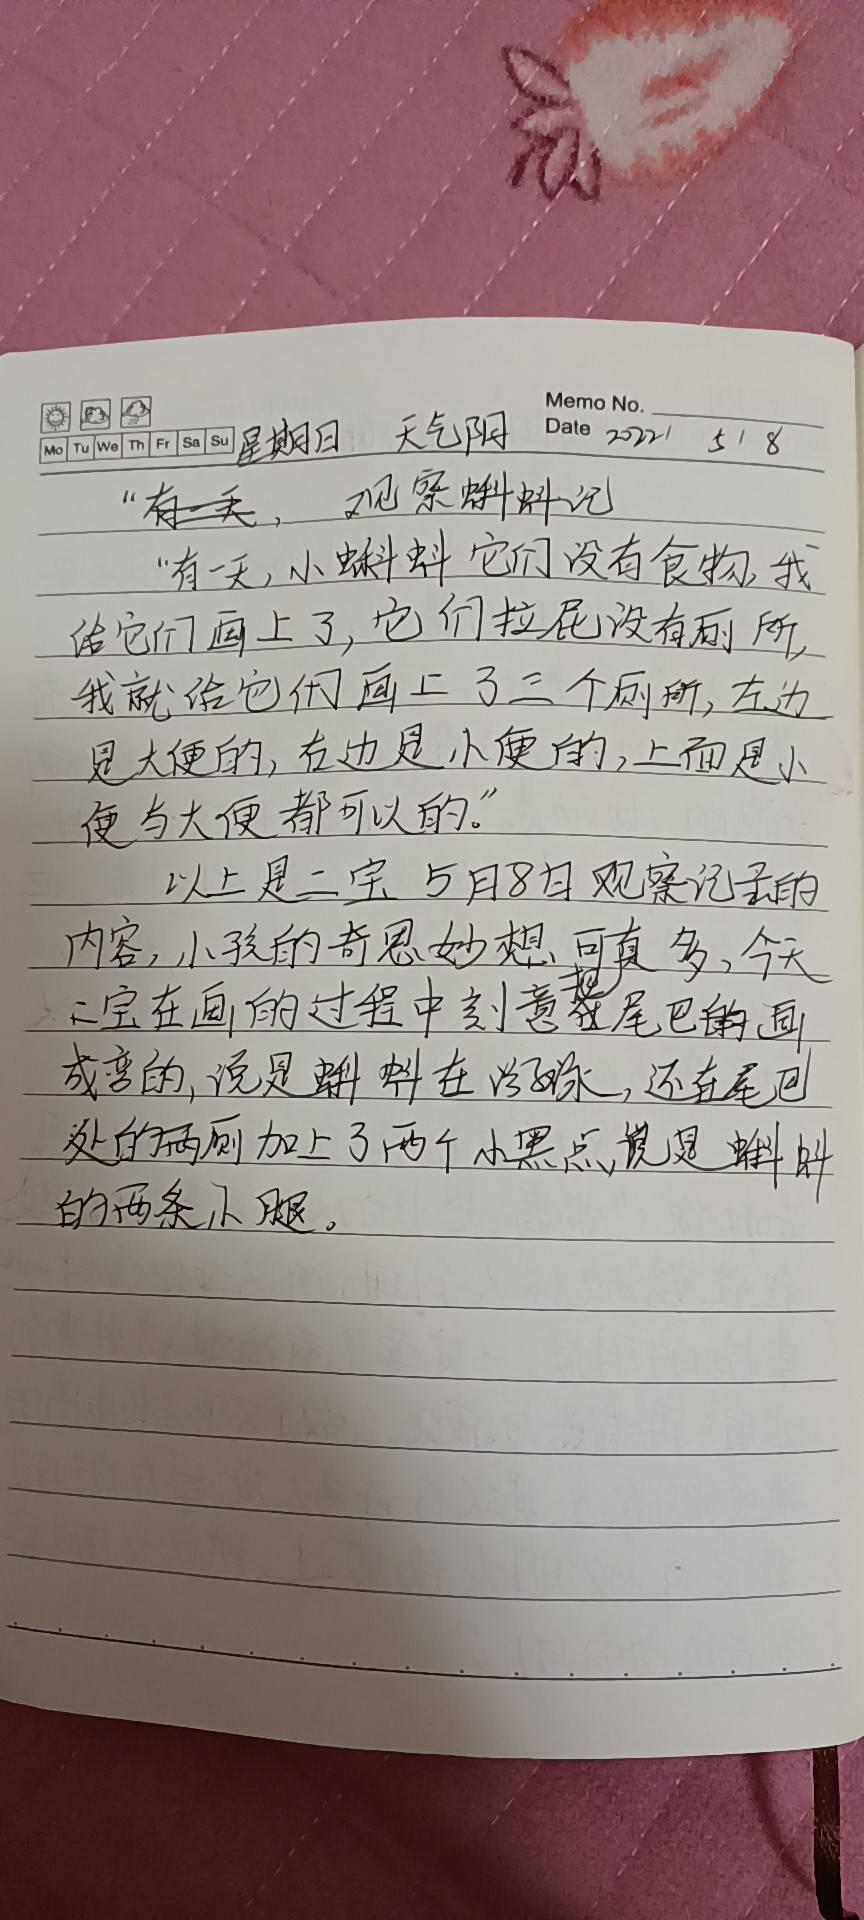 Memo No.
Mo Tu We Th Fr Sa Su 星期日 天气阴 Date 2022 5 8
"有一天, 观察蝌蚪记
"有一天,小蝌蚪它们没有食物,我
给它们画上了,它们拉屁没有厕所,
我就给它们画上了三个厕所,左边
是大便的,右边是小便的,上面是小
便与大便都可以的。"
以上是二宝5月8日观察记录的
内容,小孩的奇思妙想可真多,今天
二宝在画的过程中刻意把尾巴画
成弯的,说是蝌蚪在游泳,还在尾巴
处的两侧加上了两个小黑点,说是蝌蚪
的两条小腿。